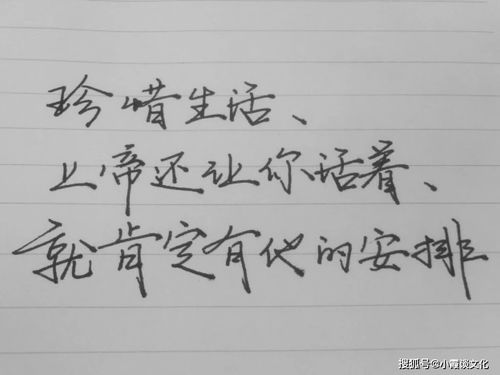 珍惜生活、
上帝还让你活着、
就肯定有他的安排
搜狐号@小霞谈文化